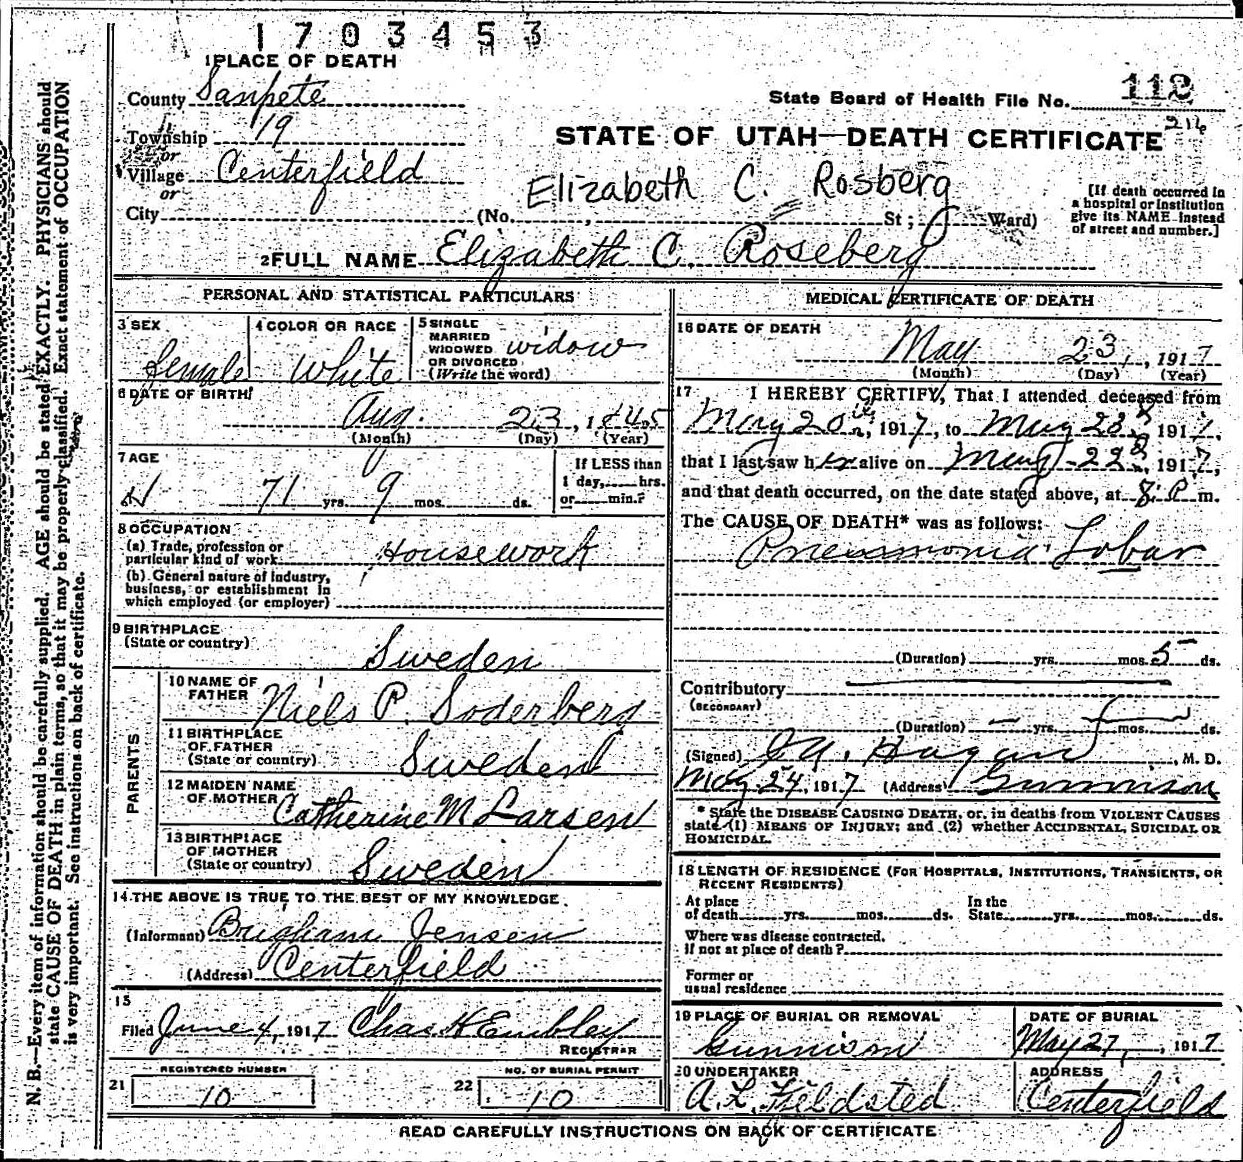 1703453
1 PLACE OF DEATH
County Sanpete
State Board of Health File No. 112
216
Township 19
or
STATE OF UTAH—DEATH CERTIFICATE
Village Centerfield
or
Elizabeth C. Rosberg
City (No. , St; Ward)
[If death occurred in a hospital or institution give its NAME instead of street and number.]
2 FULL NAME Elizabeth C. Roseberg
PERSONAL AND STATISTICAL PARTICULARS
3 SEX
female
4 COLOR OR RACE
White
5 SINGLE
MARRIED
WIDOWED
OR DIVORCED
(Write the word)
widow
6 DATE OF BIRTH
Aug. 23, 1845
(Month) (Day) (Year)
7 AGE
71 yrs. 9 mos. ds.
If LESS than
1 day, hrs.
or min.?
8 OCCUPATION
(a) Trade, profession or
particular kind of work
Housework
(b) General nature of industry,
business, or establishment in
which employed (or employer)
9 BIRTHPLACE
(State or country)
Sweden
PARENTS
10 NAME OF
FATHER
Niels P. Soderberg
11 BIRTHPLACE
OF FATHER
(State or country)
Sweden
12 MAIDEN NAME
OF MOTHER
Catherine M Larsen
13 BIRTHPLACE
OF MOTHER
(State or country)
Sweden
14 THE ABOVE IS TRUE TO THE BEST OF MY KNOWLEDGE
(Informant) Brigham Jensen
(Address) Centerfield
15
Filed June 4, 1917 Chas H Embley
REGISTRAR
21 REGISTERED NUMBER
10
22 NO. OF BURIAL PERMIT
10
MEDICAL CERTIFICATE OF DEATH
16 DATE OF DEATH
May 23, 1917
(Month) (Day) (Year)
17 I HEREBY CERTIFY, That I attended deceased from
May 20th, 1917, to May 23, 1917,
that I last saw her alive on May 22, 1917,
and that death occurred, on the date stated above, at 8 P m.
The CAUSE OF DEATH* was as follows:
Pneumonia Lobar
(Duration) yrs. mos. 5 ds.
Contributory
(SECONDARY)
(Duration) yrs. mos. ds.
(Signed) Hagan, M. D.
May 24, 1917 (Address) Gunnison
* State the DISEASE CAUSING DEATH, or, in deaths from VIOLENT CAUSES
state (1) MEANS OF INJURY; and (2) whether ACCIDENTAL, SUICIDAL OR
HOMICIDAL.
18 LENGTH OF RESIDENCE (FOR HOSPITALS, INSTITUTIONS, TRANSIENTS, OR
RECENT RESIDENTS)
At place
of death yrs. mos. ds.
In the
State yrs. mos. ds.
Where was disease contracted,
if not at place of death?
Former or
usual residence
19 PLACE OF BURIAL OR REMOVAL
Gunnison
DATE OF BURIAL
May 27, 1917
20 UNDERTAKER
A. L. Fieldsted
ADDRESS
Centerfield
READ CAREFULLY INSTRUCTIONS ON BACK OF CERTIFICATE
N. B.—Every item of information should be carefully supplied. AGE should be stated EXACTLY. PHYSICIANS should
state CAUSE OF DEATH in plain terms, so that it may be properly classified. Exact statement of OCCUPATION
is very important. See instructions on back of certificate.